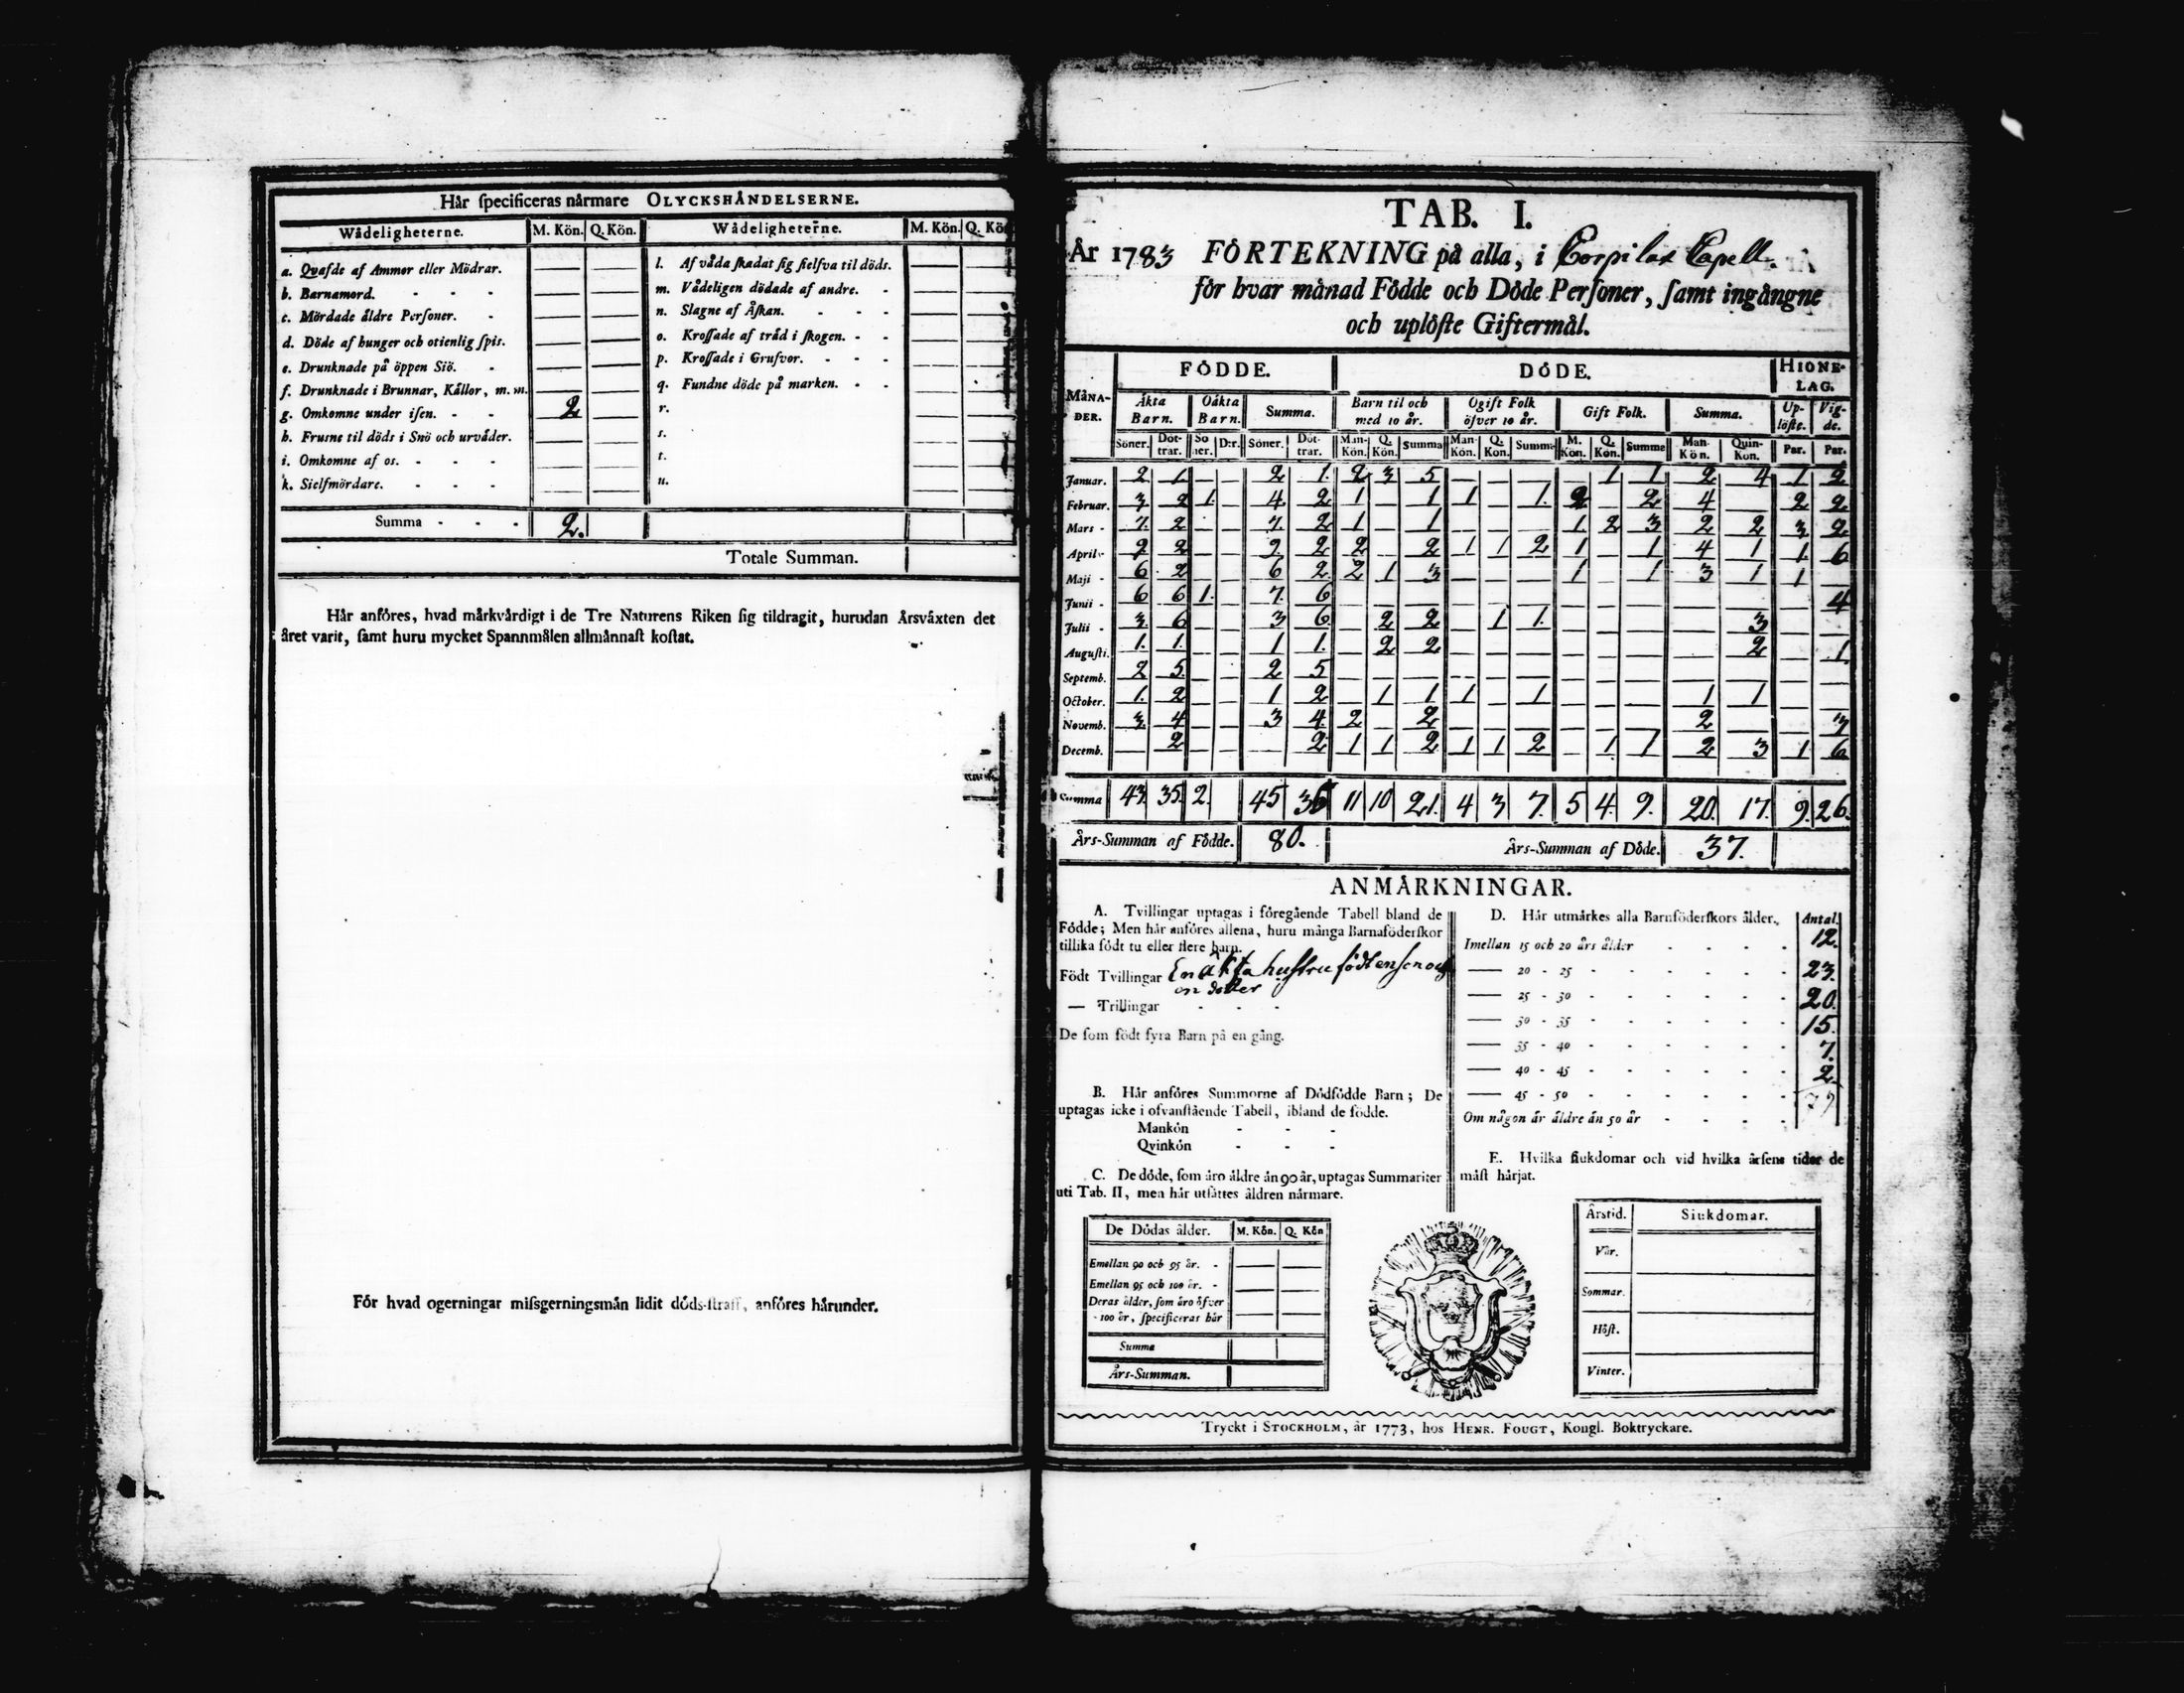 Hår specificeras nårmare OLYCKSHÅNDELSERNE.
Wådeligheterne. M. Kön. Q. Kön. Wådeligheterne. M. Kön. Q. Kön
a. Qvafde af Ammor eller Mödrar. — — l. Af våda skadat sig sielfva til döds.
b. Barnamord. — — m. Vådeligen dödade af andre.
c. Mördade åldre Personer. — — n. Slagne af Åskan.
d. Döde af hunger och otienlig spis. — — o. Krossade af tråd i skogen.
e. Drunknade på öppen Siö. — — p. Krossade i Grufvor.
f. Drunknade i Brunnar, Kållor, m. m. — — q. Fundne döde på marken.
g. Omkomne under isen. 2 — r.
h. Frusne til döds i Snö och urvåder. — — s.
i. Omkomne af os. — — t.
k. Sielfmördare. — — u.
Summa 2.
Totale Summan.
Hår anföres, hvad mårkvårdigt i de Tre Naturens Riken sig tildragit, hurudan Årsvåxten det
året varit, samt huru mycket Spannmålen allmånnast kostat.
För hvad ogerningar missgerningsmån lidit döds-straff, anföres hårunder.
TAB. I.
År 1783 FÖRTEKNING på alla, i Corpilax Capell.
för hvar månad Födde och Döde Personer, samt ingångne
och uplöste Giftermål.
MÅNADER. FÖDDE. DÖDE. HIONELAG.
Åkta Barn. Oåkta Barn. Summa. Barn til och med 10 år. Ogift Folk öfver 10 år. Gift Folk. Summa. Uplöste. Vigde.
Söner. Döttrar. Söner. D:r. Söner. Döttrar. Man-Kön. Q. Kön. Summa Man-Kön. Q. Kön. Summa M. Kön. Q. Kön. Summa Man-Kön. Quin-Kon. Par. Par.
Januar. 2 1. — — 2 1. 2 3 5 — — — — 1 1 2 4 1 2
Februar. 3 2 1. — 4 2 1 — 1 1 — 1. 2 — 2 4 — 2 2
Mars 7. 2 — — 7. 2 1 — 1 — — — 1 2 3 2 2 3 2
April 9 2 — — 9. 2 2 — 2 1 1 2 1 — 1 4 1 1. 6
Maji 6 2 — — 6 2. 2 1 3 — — — 1 — 1 3 1 1 —
Junii 6 6 1. — 7. 6 — — — — — — — — — — — — 4
Julii 3. 6 — — 3 6 — 2 2 — 1 1. — — — — 3 — —
Augusti. 1. 1. — — 1 1. — 2 2 — — — — — — — 2 — 1.
Septemb. 2 5. — — 2 5 — — — — — — — — — — — — —
October. 1. 2 — — 1 2 — 1 1 1 — 1 — — — 1 1 — —
Novemb. 3. 4 — — 3 4. 2 — 2 — — — — — — 2 — — 3
Decemb. — 2 — — — 2 1 1 2 1 1 2 — 1 1 2 3 1 6
Summa 43. 35. 2. 45 35 11 10 21. 4 3 7. 5 4. 9. 20. 17. 9. 26.
Års-Summan af Födde. 80. Års-Summan af Döde. 37.
ANMÅRKNINGAR.
A. Tvillingar uptagas i föregående Tabell bland de
Födde; Men hår anföres allena, huru många Barnaföderskor
tillika födt tu eller flere barn.
Födt Tvillingar En åkta hustru födt en son och
en dotter
— Trillingar
De som födt fyra Barn på en gång.
B. Hår anföres Summorne af Dödfödde Barn; De
uptagas icke i ofvanstående Tabell, ibland de födde.
Mankön
Qvinkön
C. De döde, som åro åldre ån 90 år, uptagas Summariter
uti Tab. II, men hår utsåttes åldren nårmare.
De Dödas ålder. M. Kön. Q. Kön
Emellan 90 och 95 år. — —
Emellan 95 och 100 år. — —
Deras ålder, som åro öfver
100 år, specificeras hår — —
Summa
Års-Summan.
D. Hår utmårkes alla Barnföderskors ålder. Antal.
Imellan 15 och 20 års ålder 12.
— 20 - 25 23.
— 25 - 30 20.
— 30 - 35 15.
— 35 - 40 7.
— 40 - 45 2.
— 45 - 50 79
Om någon år åldre ån 50 år
E. Hvilka siukdomar och vid hvilka årsens tider de
måst hårjat.
Årstid. Siukdomar.
Vår.
Sommar.
Höst.
Vinter.
Tryckt i STOCKHOLM, år 1773, hos HENR. FOUGT, Kongl. Boktryckare.